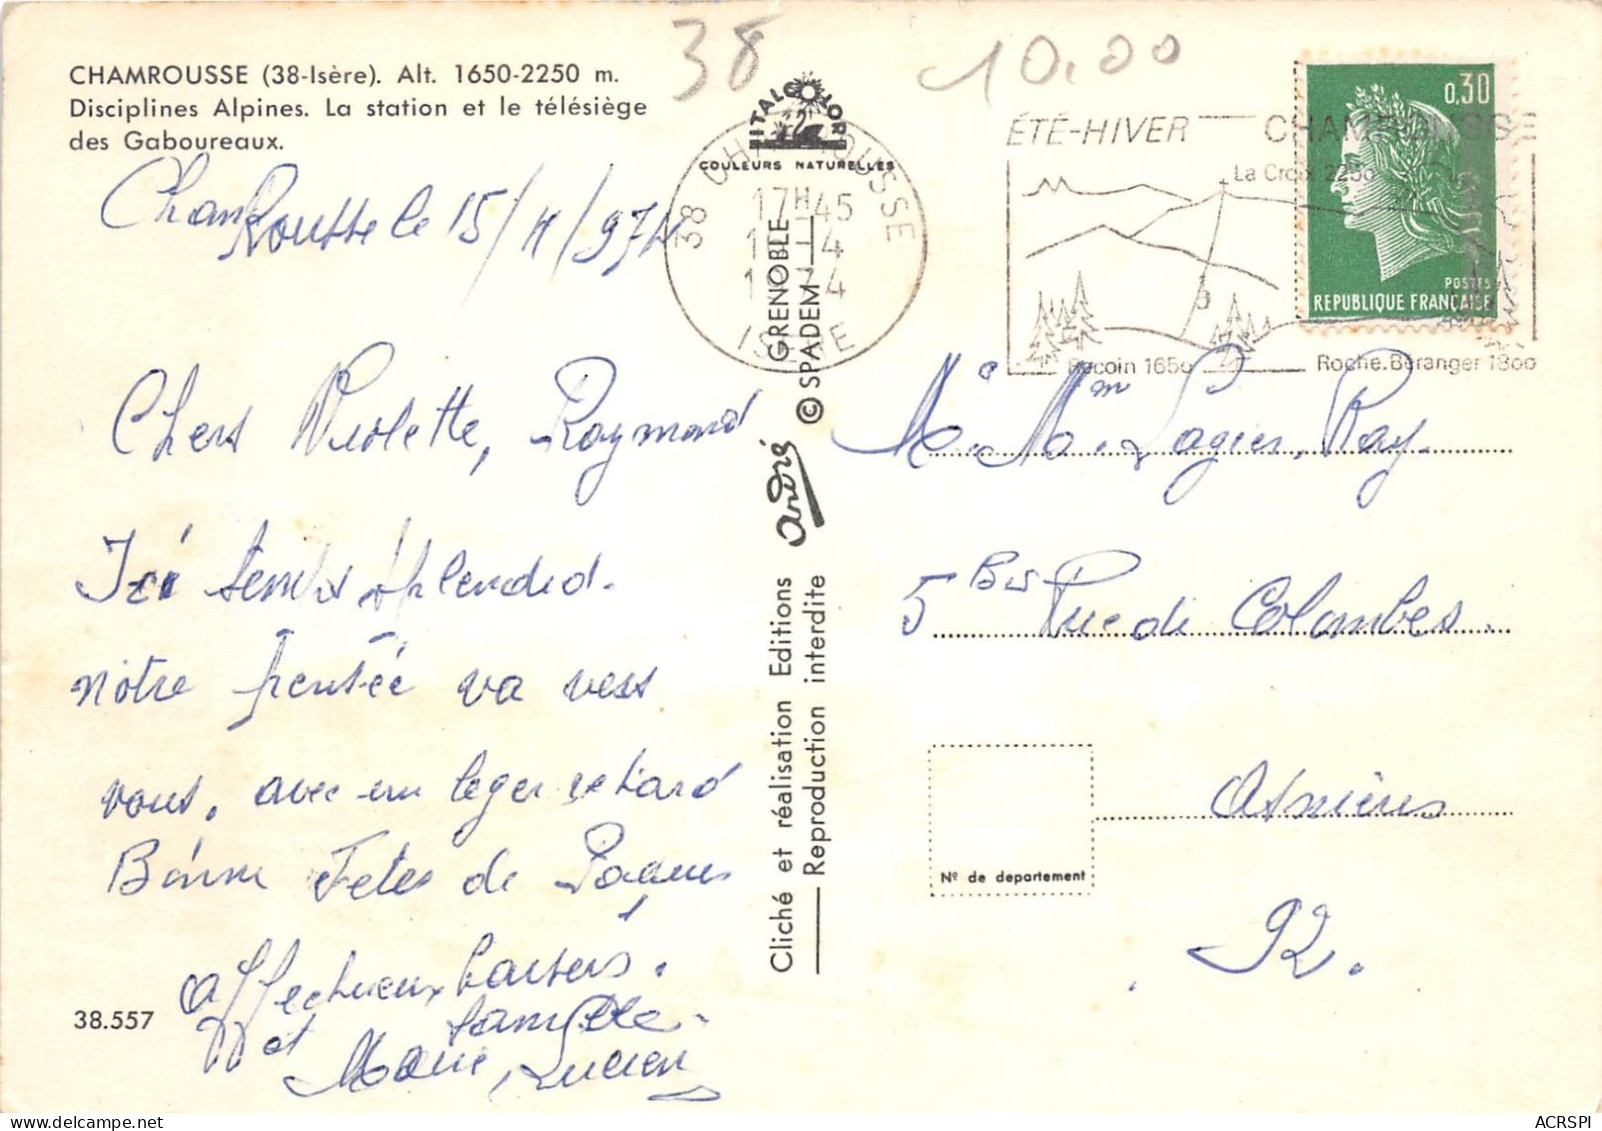 CHAMROUSSE (38-Isère). Alt. 1650-2250 m.
Disciplines Alpines. La station et le télésiège
des Gaboureaux.
38
10.00
ITALCOLOR
COULEURS NATURELLES
38 CHAMROUSSE
17H45
ISERE
ÉTÉ-HIVER CHAMROUSSE
La Croix 2250
Recoin 1650
Roche.Béranger 1800
0,30
POSTES
REPUBLIQUE FRANÇAISE
ChamRousse le 15/4/974
Chers Violette, Raymond
Ici temps splendid.
notre pensée va vers
vous. avec un leger retard
Bonne Fetes de Paques
affectueux baisers.
famille
Marie, Lucien
38.557
GRENOBLE
© SPADEM
André
Cliché et réalisation Editions
Reproduction interdite
Me Mm Lagier. Ray.
5 Bis Rue de Colombes.
Asnières
Nº de departement
92.
ACRSPI